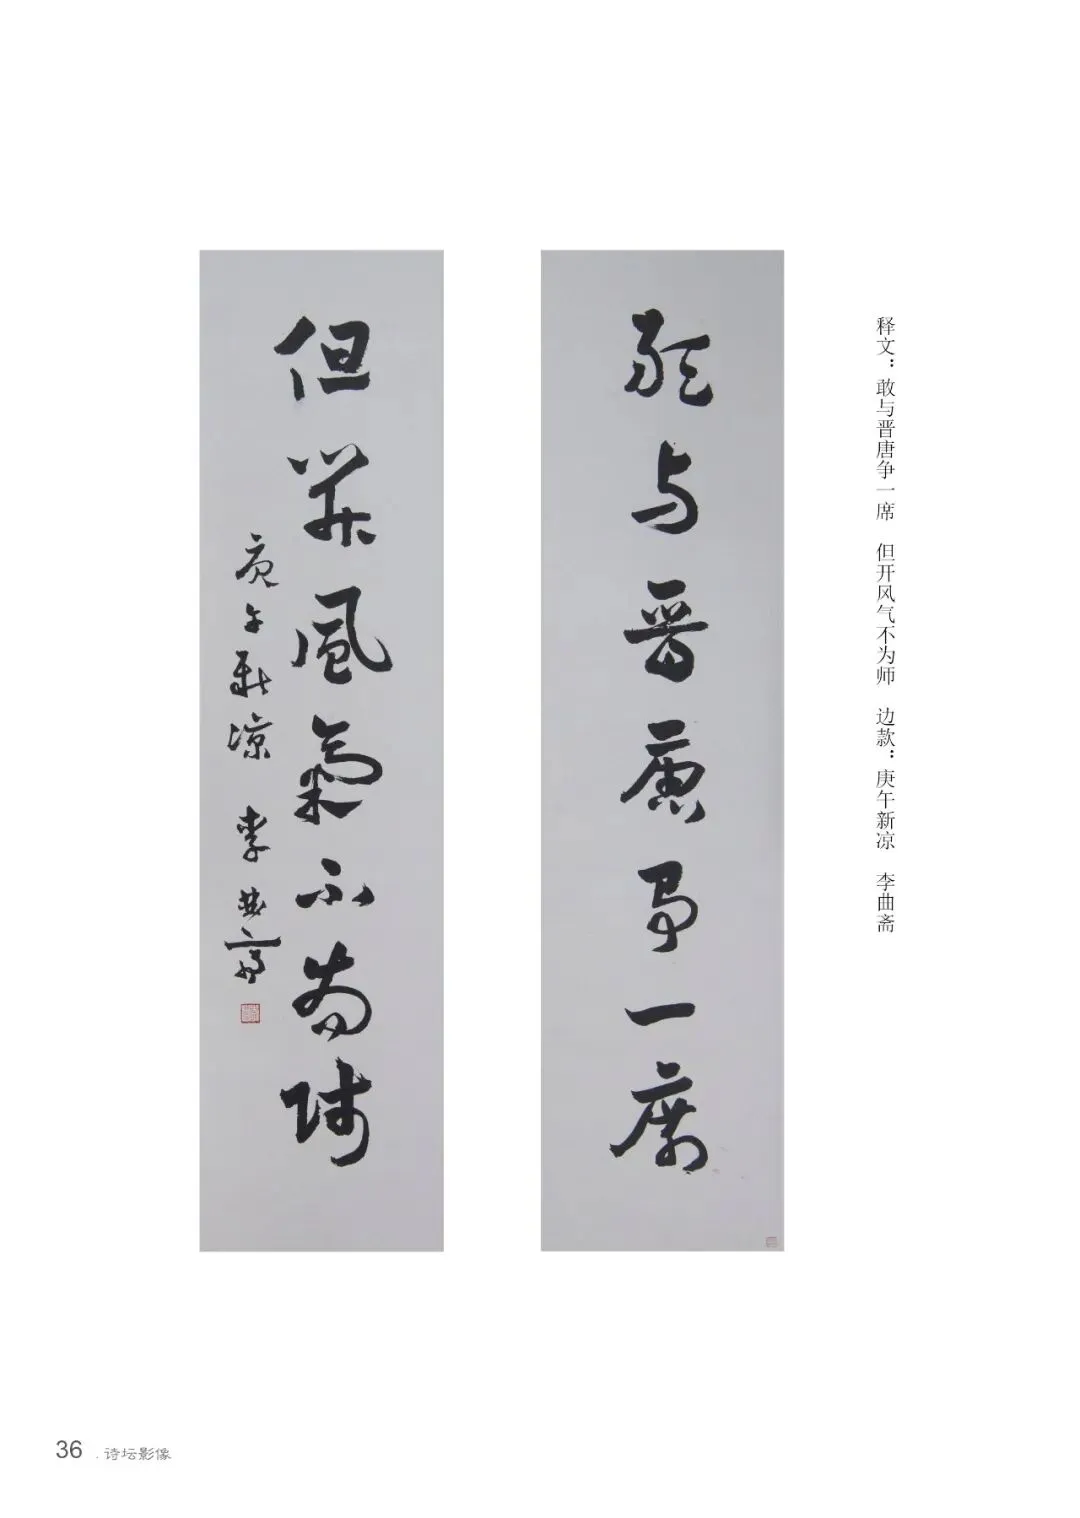 释文：敢与晋唐争一席　但开风气不为师　边款：庚午新凉　李曲斋
敢与晋唐争一席
但开風氣不为师
庚午新凉　李曲斋
36 . 诗坛影像